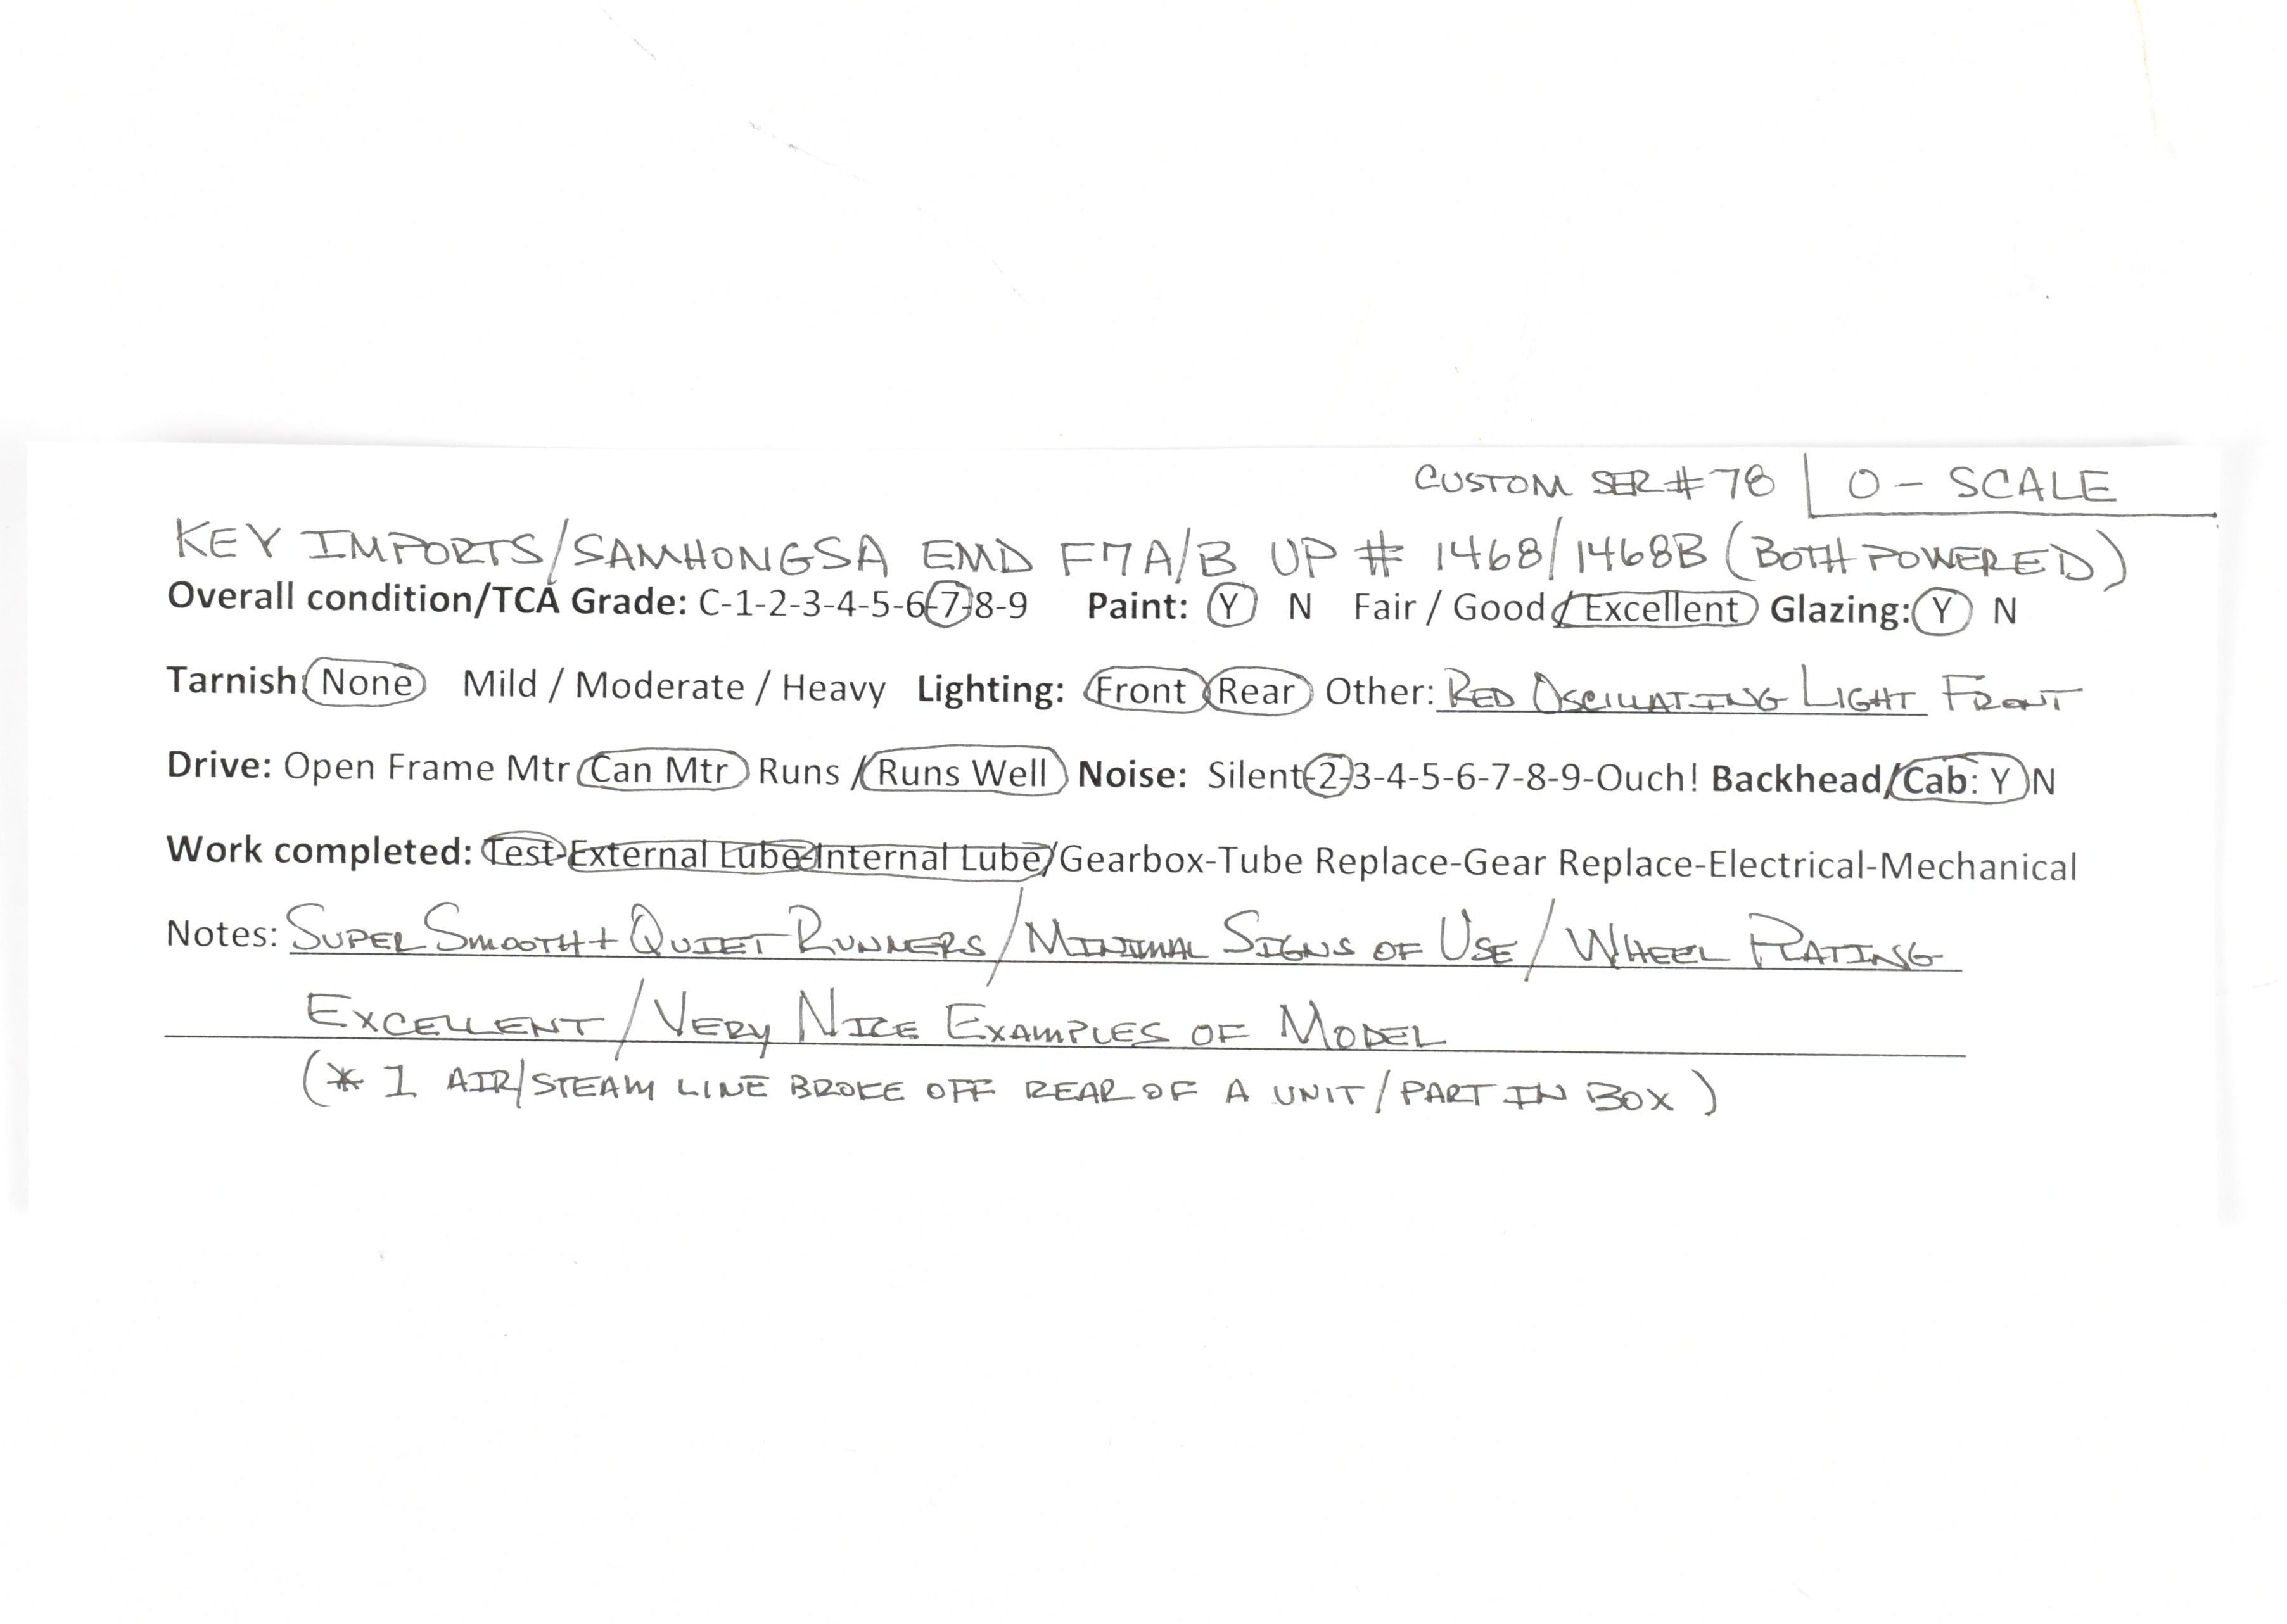 CUSTOM SER # 78 O - SCALE
KEY IMPORTS/SAMHONGSA EMD F7A/B UP # 1468/1468B (BOTH POWERED)
Overall condition/TCA Grade: C-1-2-3-4-5-6-7-8-9 Paint: Y N Fair / Good / Excellent Glazing: Y N
Tarnish: None Mild / Moderate / Heavy Lighting: Front Rear Other: RED OSCILLATING LIGHT FRONT
Drive: Open Frame Mtr Can Mtr Runs / Runs Well Noise: Silent-2-3-4-5-6-7-8-9-Ouch! Backhead/Cab: Y N
Work completed: Test-External Lube-Internal Lube/Gearbox-Tube Replace-Gear Replace-Electrical-Mechanical
Notes: SUPER SMOOTH + QUIET RUNNERS / MINIMAL SIGNS OF USE / WHEEL PLATING
EXCELLENT / VERY NICE EXAMPLES OF MODEL
(* 1 AIR/STEAM LINE BROKE OFF REAR OF A UNIT / PART IN BOX)